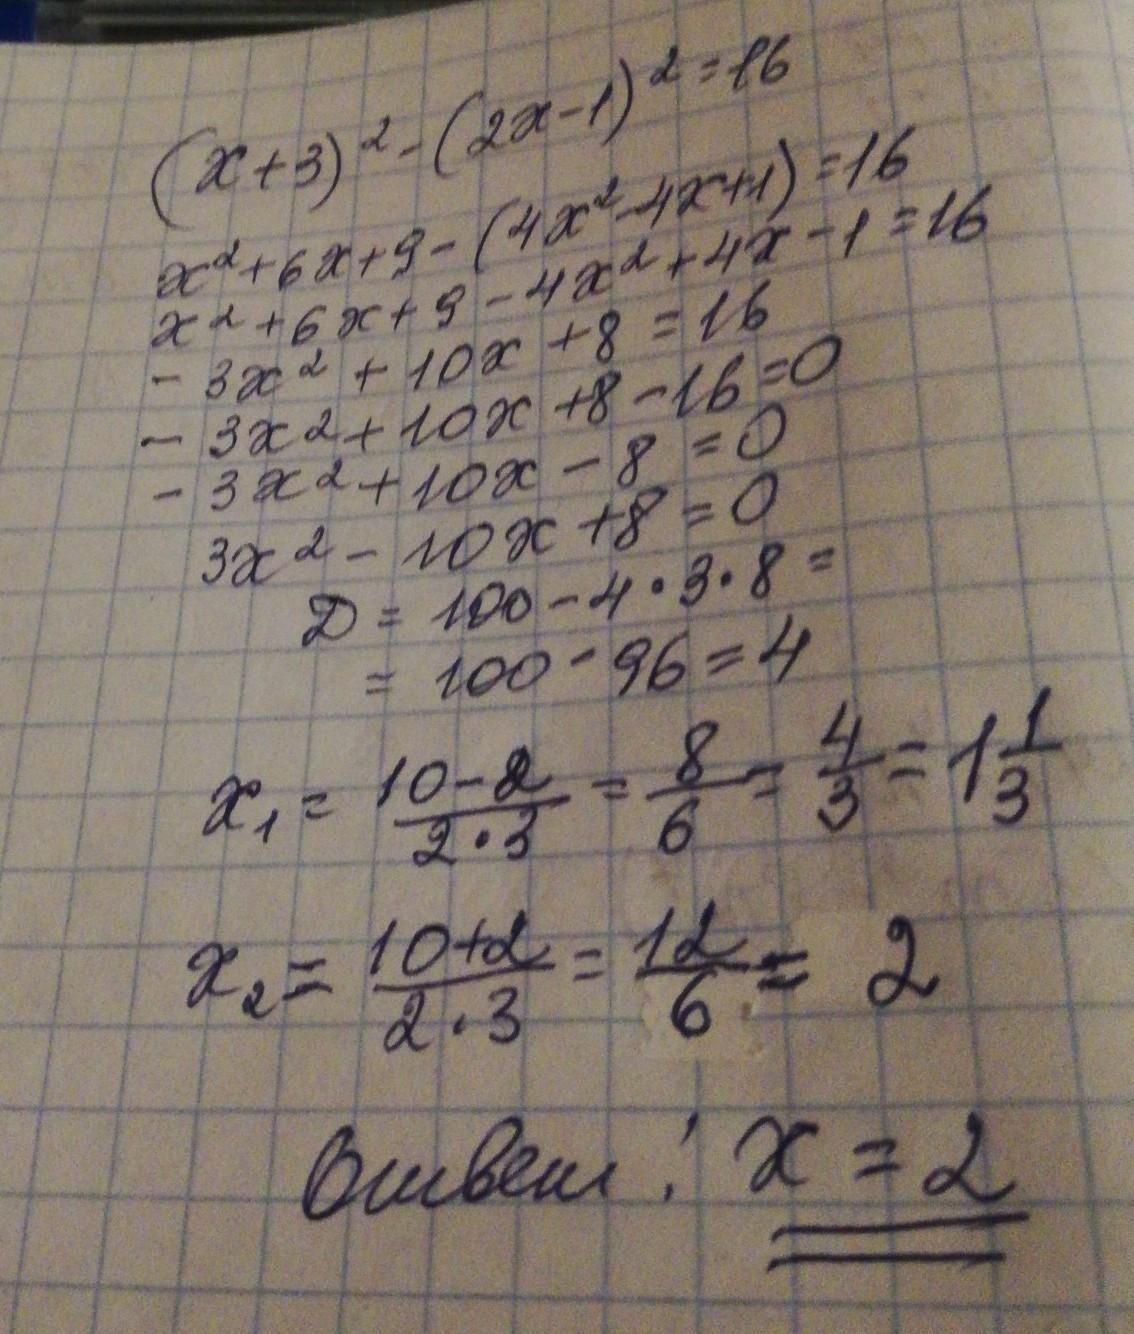 (x+3)² - (2x-1)² = 16
x² + 6x + 9 - (4x² - 4x + 1) = 16
x² + 6x + 9 - 4x² + 4x - 1 = 16
- 3x² + 10x + 8 = 16
- 3x² + 10x + 8 - 16 = 0
- 3x² + 10x - 8 = 0
3x² - 10x + 8 = 0
D = 100 - 4 · 3 · 8 =
= 100 - 96 = 4
x₁ = \frac{10-2}{2·3} = \frac{8}{6} = \frac{4}{3} = 1\frac{1}{3}
x₂ = \frac{10+2}{2·3} = \frac{12}{6} = 2
Ответ: x = 2